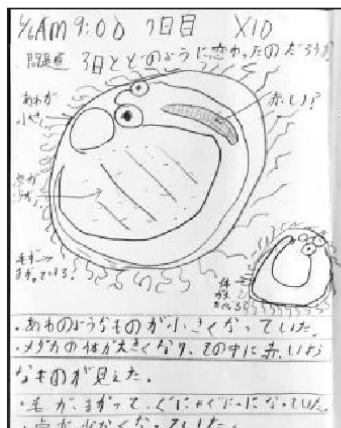 5/6 AM 9:00 7日目 X10
問題点 3日とどのように変わったのだろうか
赤い?
あわが
小さい
点が
少ない
毛が
まがっている
体が
・あわのようなものが小さくなっていた。
・メダカの体が大きくなり、その中に赤いよう
なものが見えた。
・毛が、まがって、ぐにゃぐにゃになっていた。
・点が少なくなっていた。